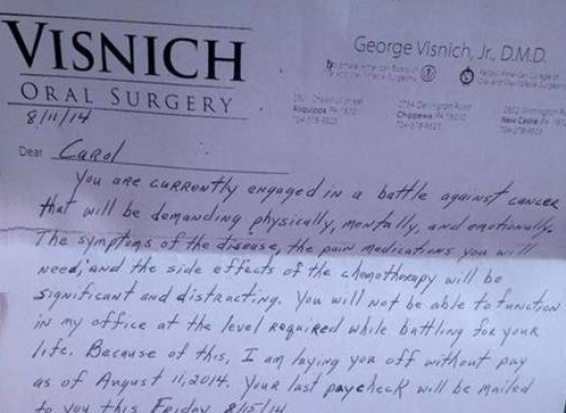 VISNICH
ORAL SURGERY
George Visnich, Jr., D.M.D.
Aliquippa
Chippewa
New Castle
8/11/14
Dear Carol
You are currently engaged in a battle against cancer
that will be demanding physically, mentally, and emotionally.
The symptoms of the disease, the pain medications you will
need, and the side effects of the chemotherapy will be
significant and distracting. You will not be able to function
in my office at the level required while battling for your
life. Because of this, I am laying you off without pay
as of August 11, 2014. Your last paycheck will be mailed
to you this Friday 8/15/14